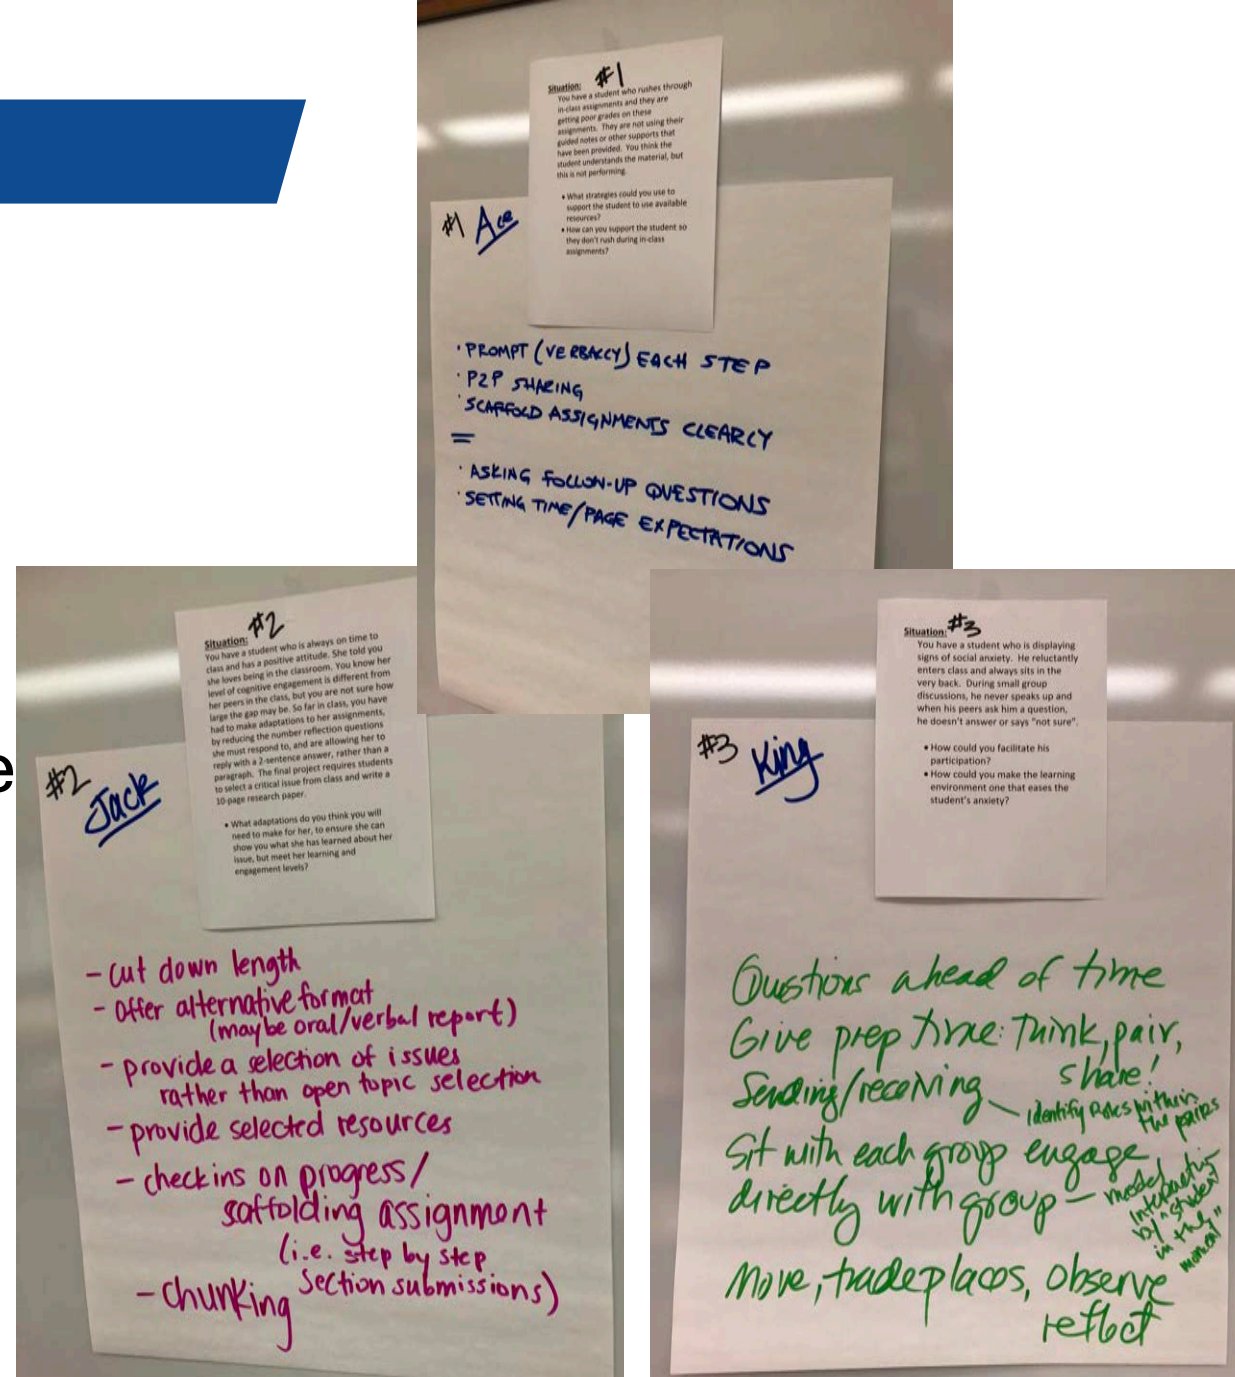 Situation: #1
You have a student who rushes through
in-class assignments and they are
getting poor grades on these
assignments. They are not using their
guided notes or other supports that
have been provided. You think the
student understands the material, but
this is not performing.
• What strategies could you use to
support the student to use available
resources?
• How can you support the student so
they don't rush during in-class
assignments?
#1 Ace
· PROMPT (VERBALLY) EACH STEP
· P2P SHARING
· SCAFFOLD ASSIGNMENTS CLEARLY
=
· ASKING FOLLOW-UP QUESTIONS
· SETTING TIME/PAGE EXPECTATIONS
e
Situation: #2
You have a student who is always on time to
class and has a positive attitude. She told you
she loves being in the classroom. You know her
level of cognitive engagement is different from
her peers in the class, but you are not sure how
large the gap may be. So far in class, you have
had to make adaptations to her assignments,
by reducing the number reflection questions
she must respond to, and are allowing her to
reply with a 2-sentence answer, rather than a
paragraph. The final project requires students
to select a critical issue from class and write a
10-page research paper.
• What adaptations do you think you will
need to make for her, to ensure she can
show you what she has learned about her
issue, but meet her learning and
engagement levels?
#2 Jack
- cut down length
- offer alternative format
(maybe oral/verbal report)
- provide a selection of issues
rather than open topic selection
- provide selected resources
- check ins on progress/
scaffolding assignment
(i.e. step by step
section submissions)
- chunking
Situation: #3
You have a student who is displaying
signs of social anxiety. He reluctantly
enters class and always sits in the
very back. During small group
discussions, he never speaks up and
when his peers ask him a question,
he doesn't answer or says "not sure".
• How could you facilitate his
participation?
• How could you make the learning
environment one that eases the
student's anxiety?
#3 King
Questions ahead of time
Give prep time: Think, pair,
share!
Sending/receiving
— identify roles within
the pairs
Sit with each group engage
directly with group — model
interaction
by "student
in the
moment"
Move, trade places, observe
reflect